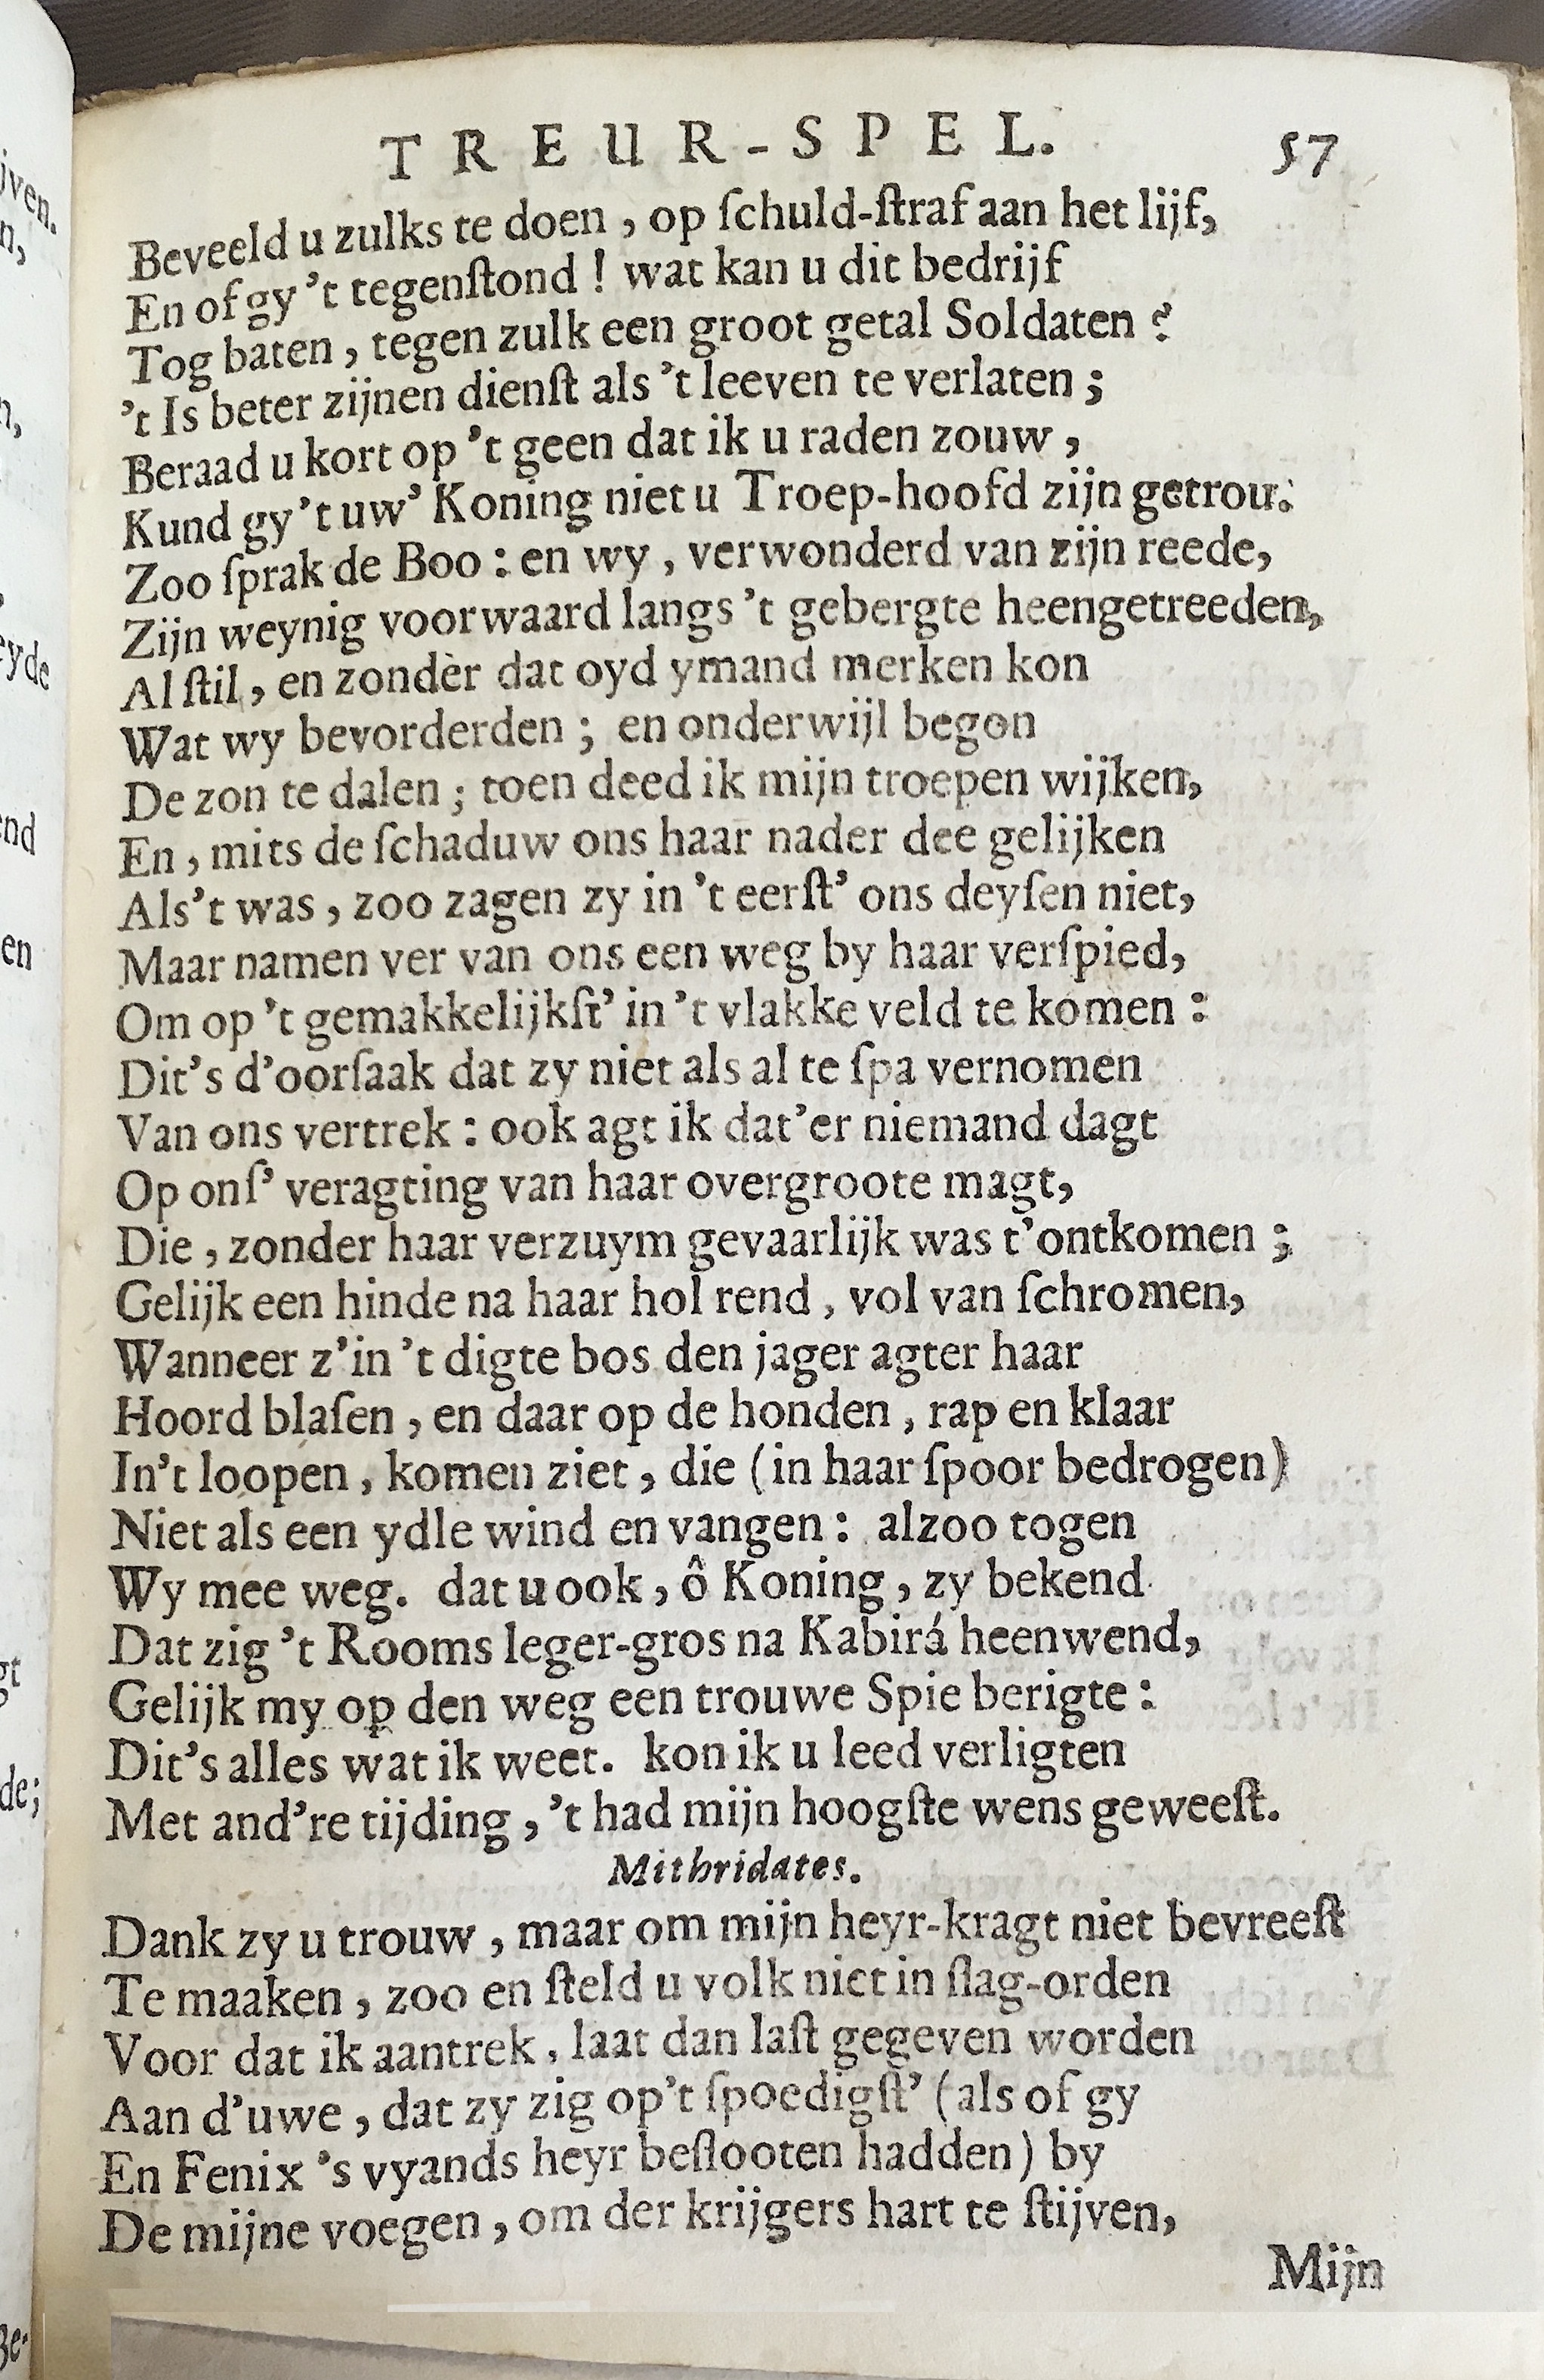 TREUR-SPEL. 57
Beveeld u zulks te doen, op ſchuld-ſtraf aan het lijf,
En of gy 't tegenſtond! wat kan u dit bedrijf
Tog baten, tegen zulk een groot getal Soldaten?
't Is beter zijnen dienſt als 't leeven te verlaten;
Beraad u kort op 't geen dat ik u raden zouw,
Kund gy 't uw' Koning niet u Troep-hoofd zijn getrou.
Zoo ſprak de Boo: en wy, verwonderd van zijn reede,
Zijn weynig voorwaard langs 't gebergte heengetreeden,
Al ſtil, en zondèr dat oyd ymand merken kon
Wat wy bevorderden; en onderwijl begon
De zon te dalen; toen deed ik mijn troepen wijken,
En, mits de ſchaduw ons haar nader dee gelijken
Als't was, zoo zagen zy in 't eerſt' ons deyſen niet,
Maar namen ver van ons een weg by haar verſpied,
Om op 't gemakkelijkſt' in 't vlakke veld te komen:
Dit's d'oorſaak dat zy niet als al te ſpa vernomen
Van ons vertrek: ook agt ik dat'er niemand dagt
Op onſ' veragting van haar overgroote magt,
Die, zonder haar verzuym gevaarlijk was t'ontkomen;
Gelijk een hinde na haar hol rend, vol van ſchromen,
Wanneer z'in 't digte bos den jager agter haar
Hoord blaſen, en daar op de honden, rap en klaar
In't loopen, komen ziet, die (in haar ſpoor bedrogen)
Niet als een ydle wind en vangen: alzoo togen
Wy mee weg. dat u ook, ô Koning, zy bekend
Dat zig 't Rooms leger-gros na Kabirá heenwend,
Gelijk my op den weg een trouwe Spie berigte:
Dit's alles wat ik weet. kon ik u leed verligten
Met and're tijding, 't had mijn hoogſte wens geweeſt.
Mithridates.
Dank zy u trouw, maar om mijn heyr-kragt niet bevreeſt
Te maaken, zoo en ſteld u volk niet in ſlag-orden
Voor dat ik aantrek, laat dan laſt gegeven worden
Aan d'uwe, dat zy zig op't ſpoedigſt' (als of gy
En Fenix 's vyands heyr beſlooten hadden) by
De mijne voegen, om der krijgers hart te ſtijven,
Mijn